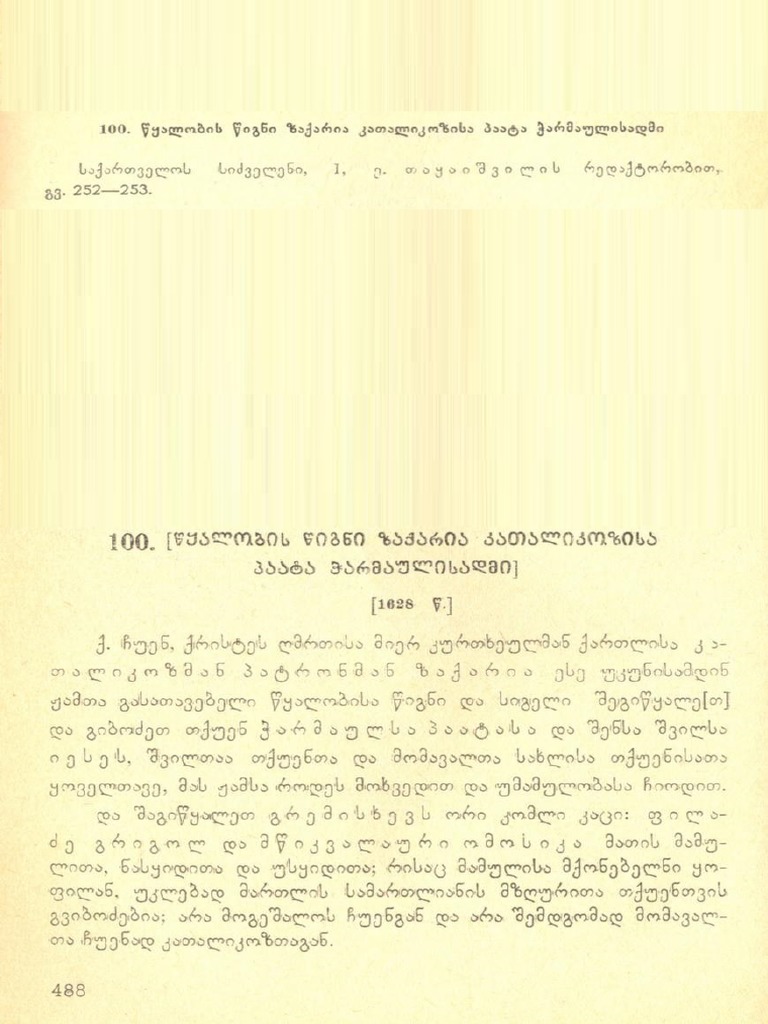 100. წყალობის წიგნი ზაქარია კათალიკოზისა პაატა ჭარმაულისადმი
საქართველოს სიძველენი, I, ე. თაყაიშვილის რედაქტორობით,
გვ. 252—253.
100. [წყალობის წიგნი ზაქარია კათალიკოზისა
პაატა ჭარმაულისადმი]
[1628 წ.]
ქ. ჩუენ, ქრისტეს ღმრთისა მიერ კურთხეულმან ქართლისა კა-
თალიკოზმან პატრონმან ზაქარია ესე უკუნისამდინ
ჟამთა გასათავებელი წყალობისა წიგნი და სიგელი შეგიწყალე[თ]
და გიბოძეთ თქუენ ჭარმაულსა პაატასა და შენსა შვილსა
იესეს, შვილთაა თქუენთა და მომავალთა სახლისა თქუენისათა
ყოველთავე, მას ჟამსა როდეს მოხვედით და უმამულობასა ჩიოდით.
და შაგიწყალეთ გრემისხევს ორი კომლი კაცი: ფილა-
ძე გრიგოლ და მწიკვალაური ომოსიკა მათის მამუ-
ლითა, ნასყიდითა და უსყიდითა; რისაც მამულისა მქონებელნი ყო-
ფილან, უკლებად მართლის სამართლიანის მზღურითა თქუენთვის
გვიბოძებია; არა მოგეშალოს ჩუენგან და არა შემდგომად მომავალ-
თა ჩუენად კათალიკოზთაგან.
488